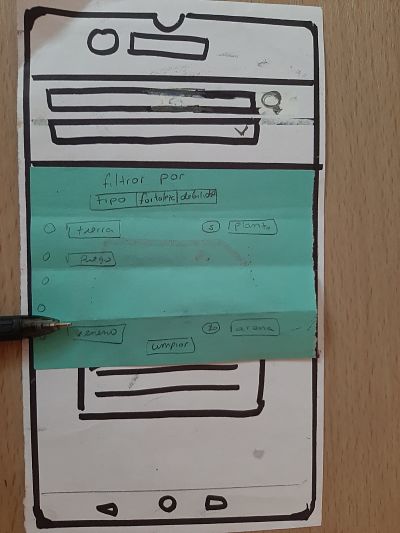 filtrar por
tipo fortaleza debilidad
tierra 5 planta
fuego
veneno 10 arena
limpiar